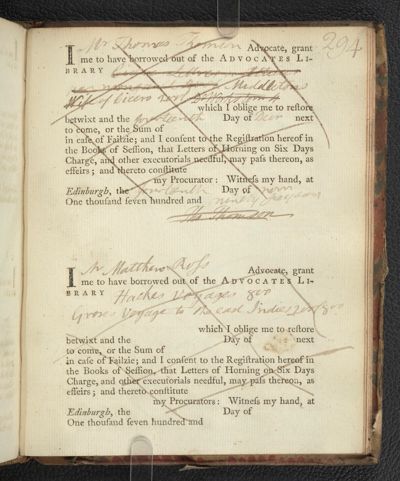 294
I Mr Thomas Thomson Advocate, grant
me to have borrowed out of the ADVOCATES LI-
BRARY
Middletons
Life of Cicero
which I oblige me to reſtore
betwixt and the fourteenth Day of next
to come, or the Sum of
in caſe of Failzie; and I conſent to the Regiſtration hereof in
the Books of Seſſion, that Letters of Horning on Six Days
Charge, and other executorials needful, may paſs thereon, as
effeirs; and thereto conſtitute
my Procurator: Witneſs my hand, at
Edinburgh, the fourteenth Day of
One thouſand ſeven hundred and ninety
Tho Thomson
I Mr Matthew Roſs Advocate, grant
me to have borrowed out of the ADVOCATES LI-
BRARY Hackes Voyages 8vo
Groses Voyage to the East Indies 8vo
which I oblige me to reſtore
betwixt and the Day of next
to come, or the Sum of
in caſe of Failzie; and I conſent to the Regiſtration hereof in
the Books of Seſſion, that Letters of Horning on Six Days
Charge, and other executorials needful, may paſs thereon, as
effeirs; and thereto conſtitute
my Procurators: Witneſs my hand, at
Edinburgh, the Day of
One thouſand ſeven hundred and